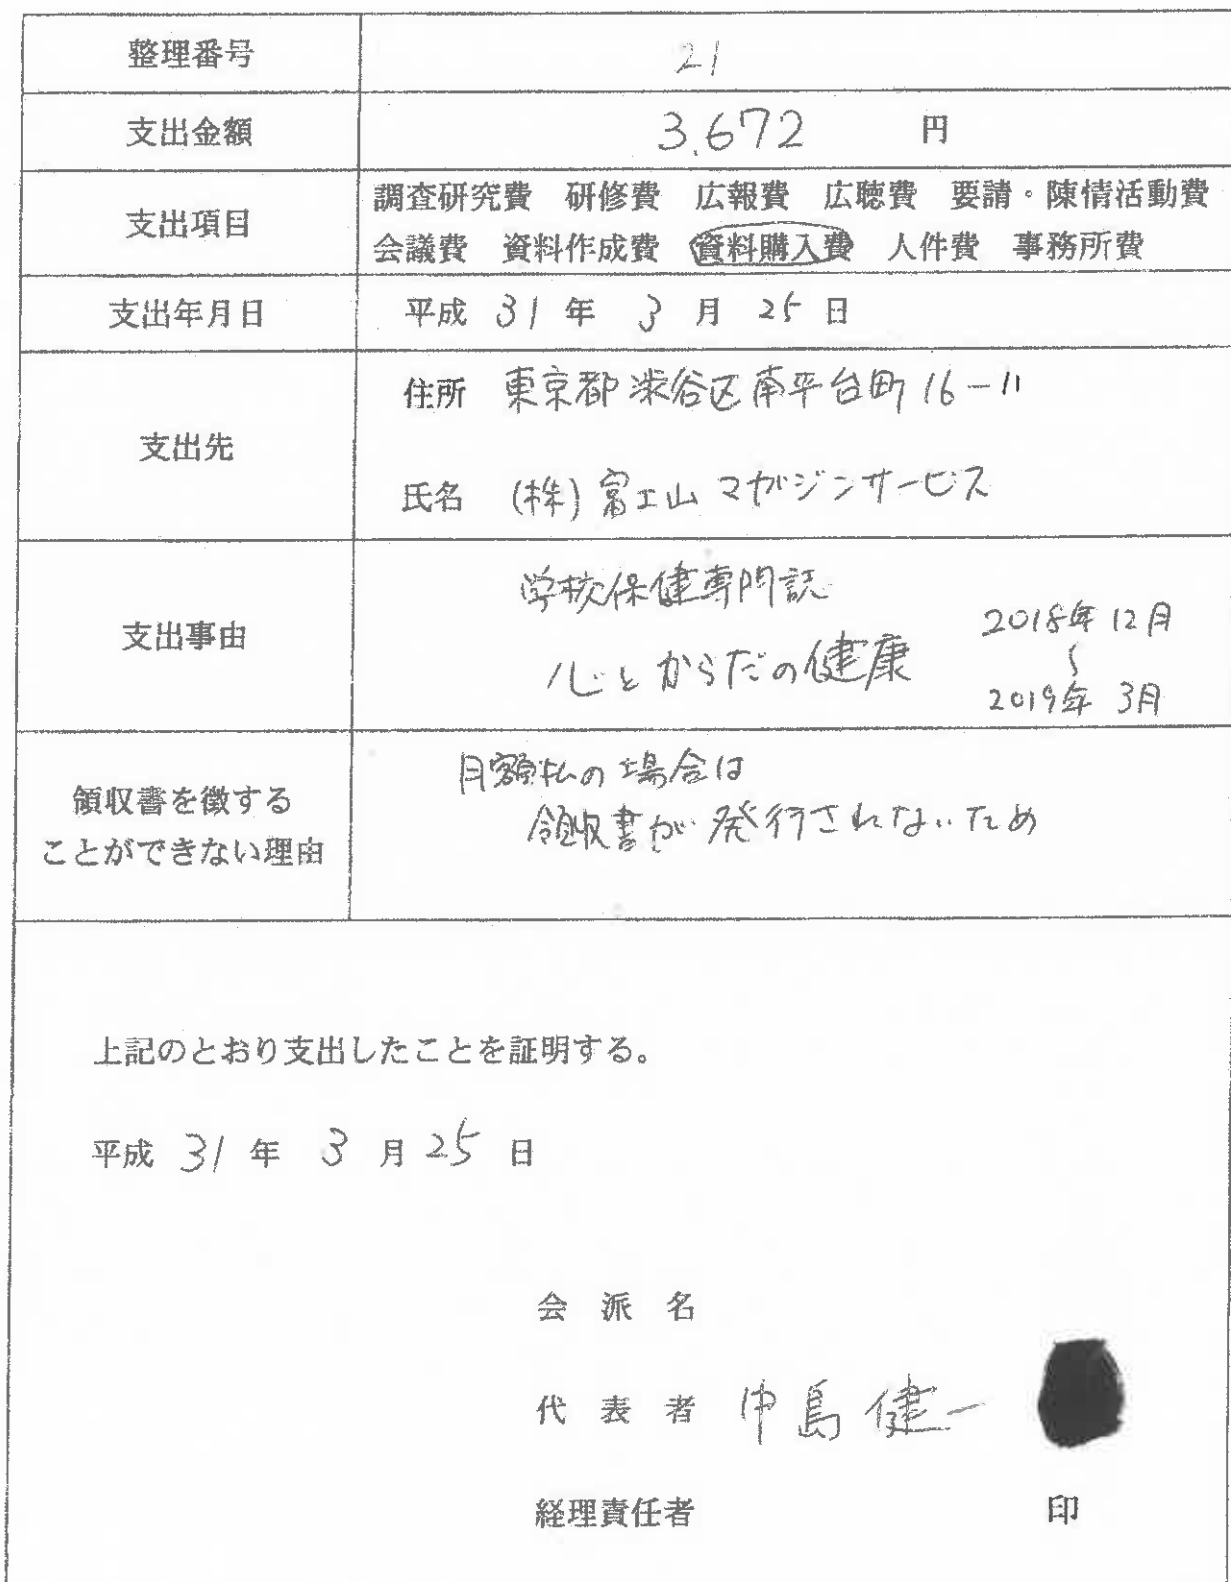 整理番号 21
支出金額 3,672 円
支出項目 調査研究費 研修費 広報費 広聴費 要請・陳情活動費
会議費 資料作成費 資料購入費 人件費 事務所費
支出年月日 平成 31 年 3 月 25 日
支出先 住所 東京都渋谷区南平台町16-11
氏名 (株)富士山マガジンサービス
支出事由 学校保健専門誌
心とからだの健康
2018年12月
〜
2019年 3月
領収書を徴する
ことができない理由
月額払の場合は
領収書が発行されないため
上記のとおり支出したことを証明する。
平成 31 年 3 月 25 日
会派名
代表者 中島健一
経理責任者 印